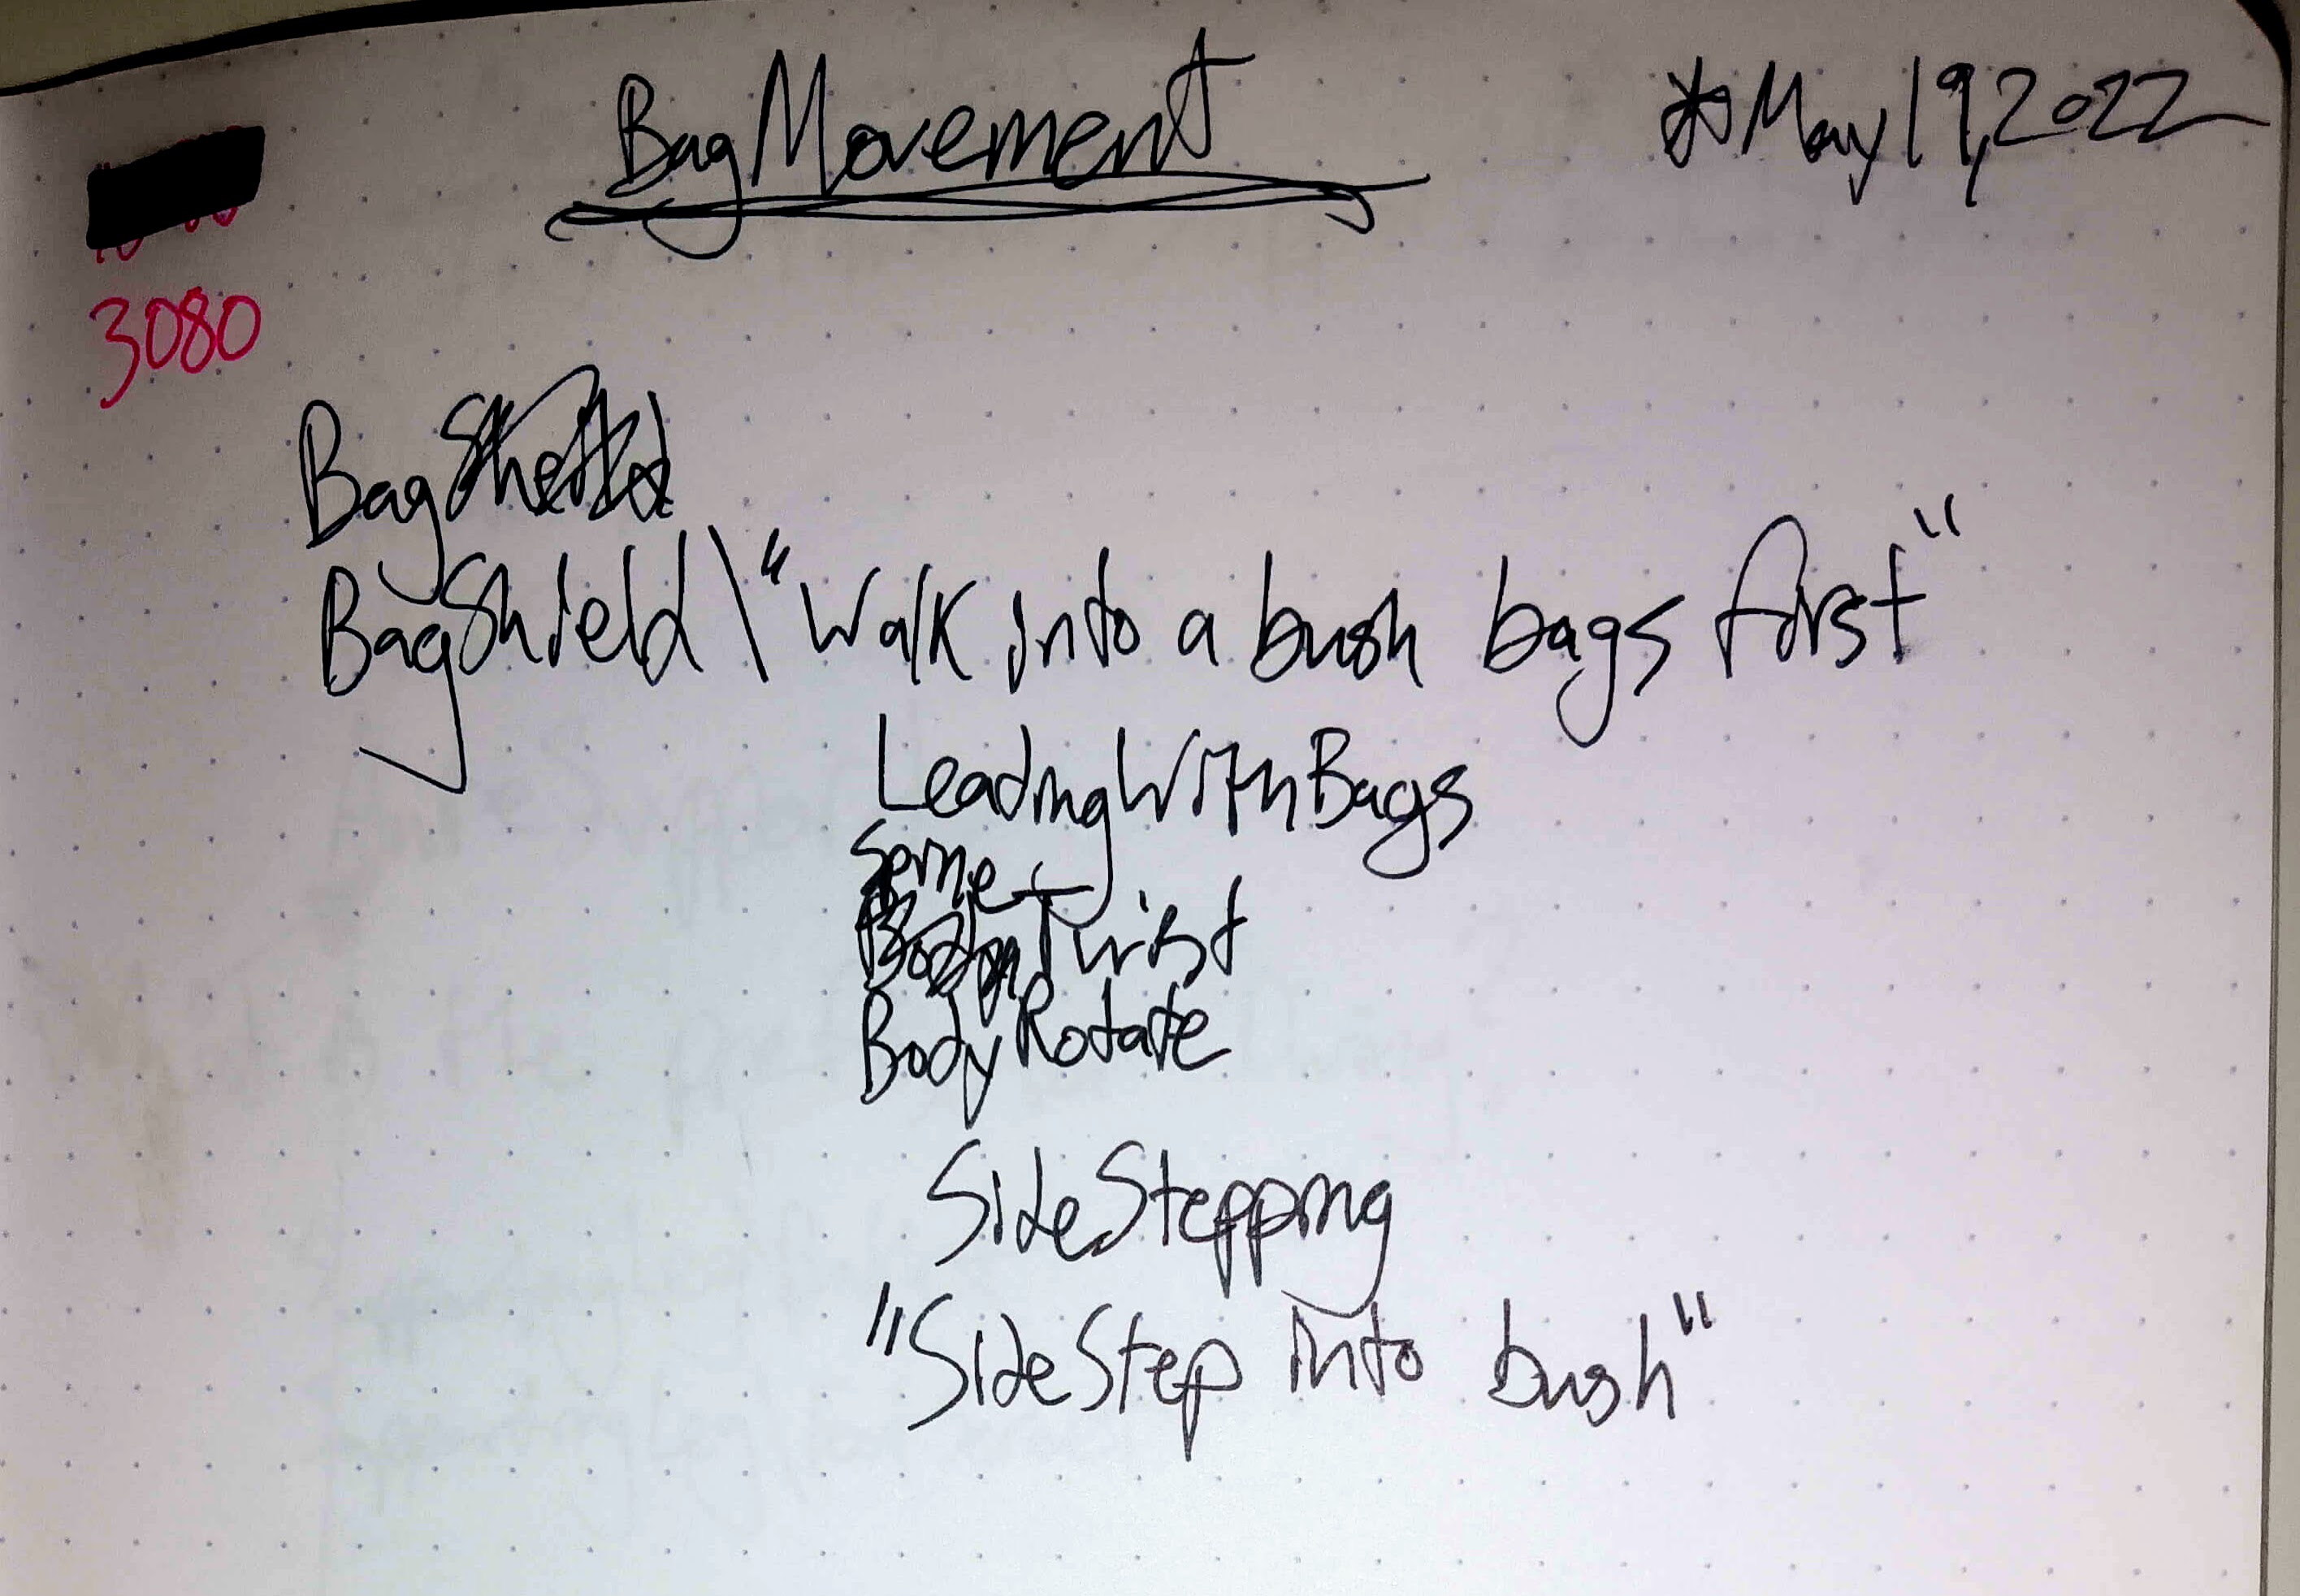 BagMovement
May 19, 2022
3080
Bag
BagShield \ "Walk into a bush bags first"
LeadingWithBags
Twist
BodyRotate
SideStepping
"SideStep into bush"